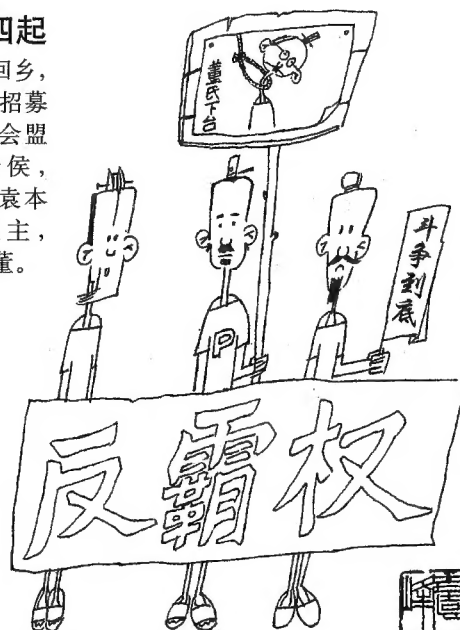 四起
回乡，
招募
会盟
侯，
袁本
主，
董。
董氏下台
斗争到底
P
反霸权